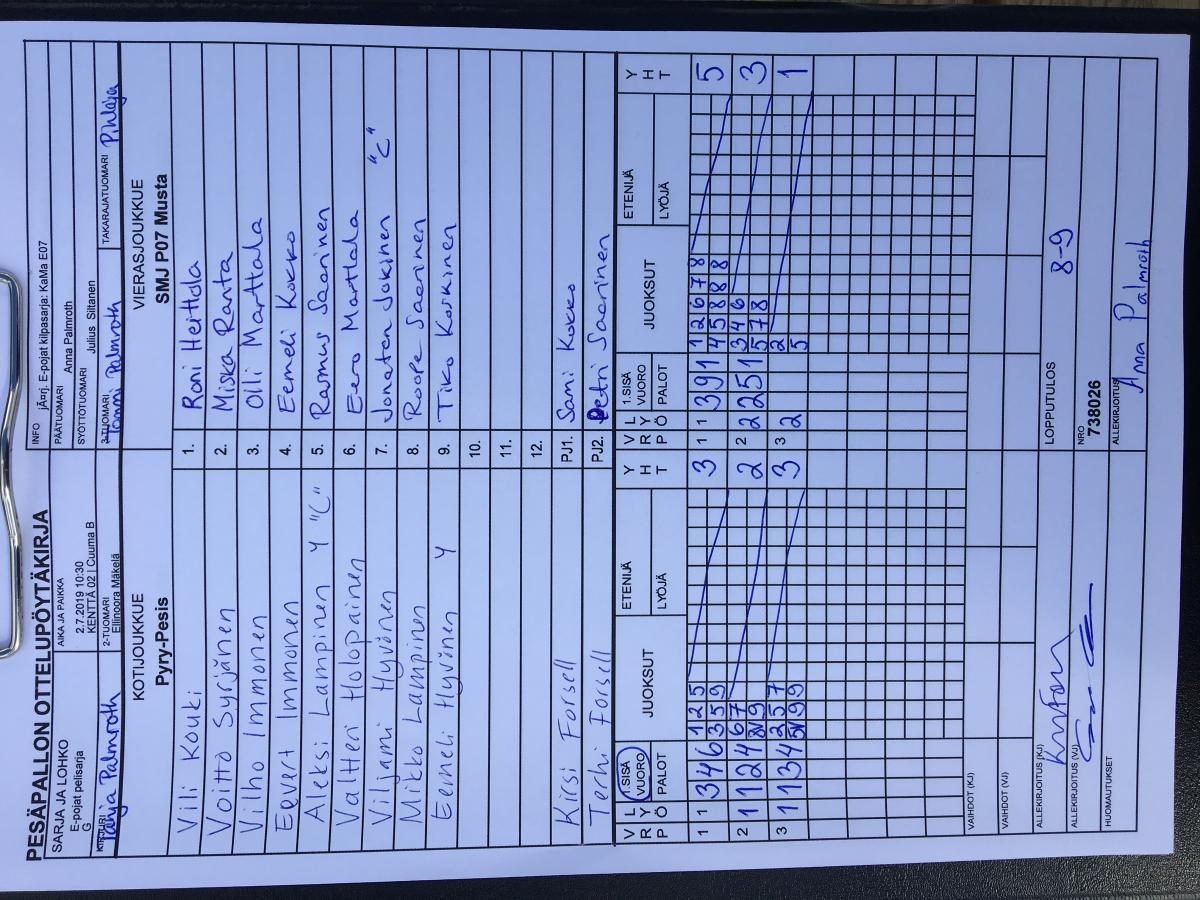 PESÄPALLON OTTELUPÖYTÄKIRJA
SARJA JA LOHKO
E-pojat pelisarja
G
AIKA JA PAIKKA
2.7.2019 10:30
KENTTÄ 02 | Cuuma B
INFO jÃ¤rj. E-pojat kilpasarja: KaMa E07
PÄÄTUOMARI Anna Palmroth
SYÖTTÖTUOMARI Julius Siltanen
KIRJURI Tanja Palmroth
2-TUOMARI Ellinoora Mäkelä
3-TUOMARI Tommi Palmroth
TAKARAJATUOMARI Pihlaja
KOTIJOUKKUE VIERASJOUKKUE
Pyry-Pesis SMJ P07 Musta
Vili Kouki 1. Roni Heittola
Voitto Syrjänien 2. Miska Ranta
Vilho Immonen 3. Olli Marttala
Eevert Immonen 4. Eemeli Kokko
Aleksi Lampinen Y "C" 5. Rasmus Saarinen
Valtteri Holopainen 6. Eero Marttala
Viljami Hyvönen 7. Jonatan Jokinen "C"
Mikko Lampinen 8. Roope Saarinen
Eemeli Hyvönen Y 9. Tiko Korkinen
10.
11.
12.
Kirsi Forsell PJ1. Sami Kokko
Terhi Forsell PJ2. Petri Saarinen
V R P L Y Ö 1.SISÄ VUORO PALOT JUOKSUT ETENIJÄ LYÖJÄ Y H T V R P L Y Ö 1.SISÄ VUORO PALOT JUOKSUT ETENIJÄ LYÖJÄ Y H T
1 1 3 4 6 1 2 5 3 1 1 3 9 1 1 2 6 7 8 5
3 5 9 4 5 8 8 8
2 1 1 2 4 6 7 2 2 2 2 5 1 3 4 6 3
8 V 9 5 7 8
3 1 1 3 4 2 5 7 3 3 2 2 1
5 V 9 9 5
VAIHDOT (KJ)
VAIHDOT (VJ)
ALLEKIRJOITUS (KJ)
LOPPUTULOS 8-9
ALLEKIRJOITUS (VJ)
NRO
738026
HUOMAUTUKSET
ALLEKIRJOITUS Anna Palmroth